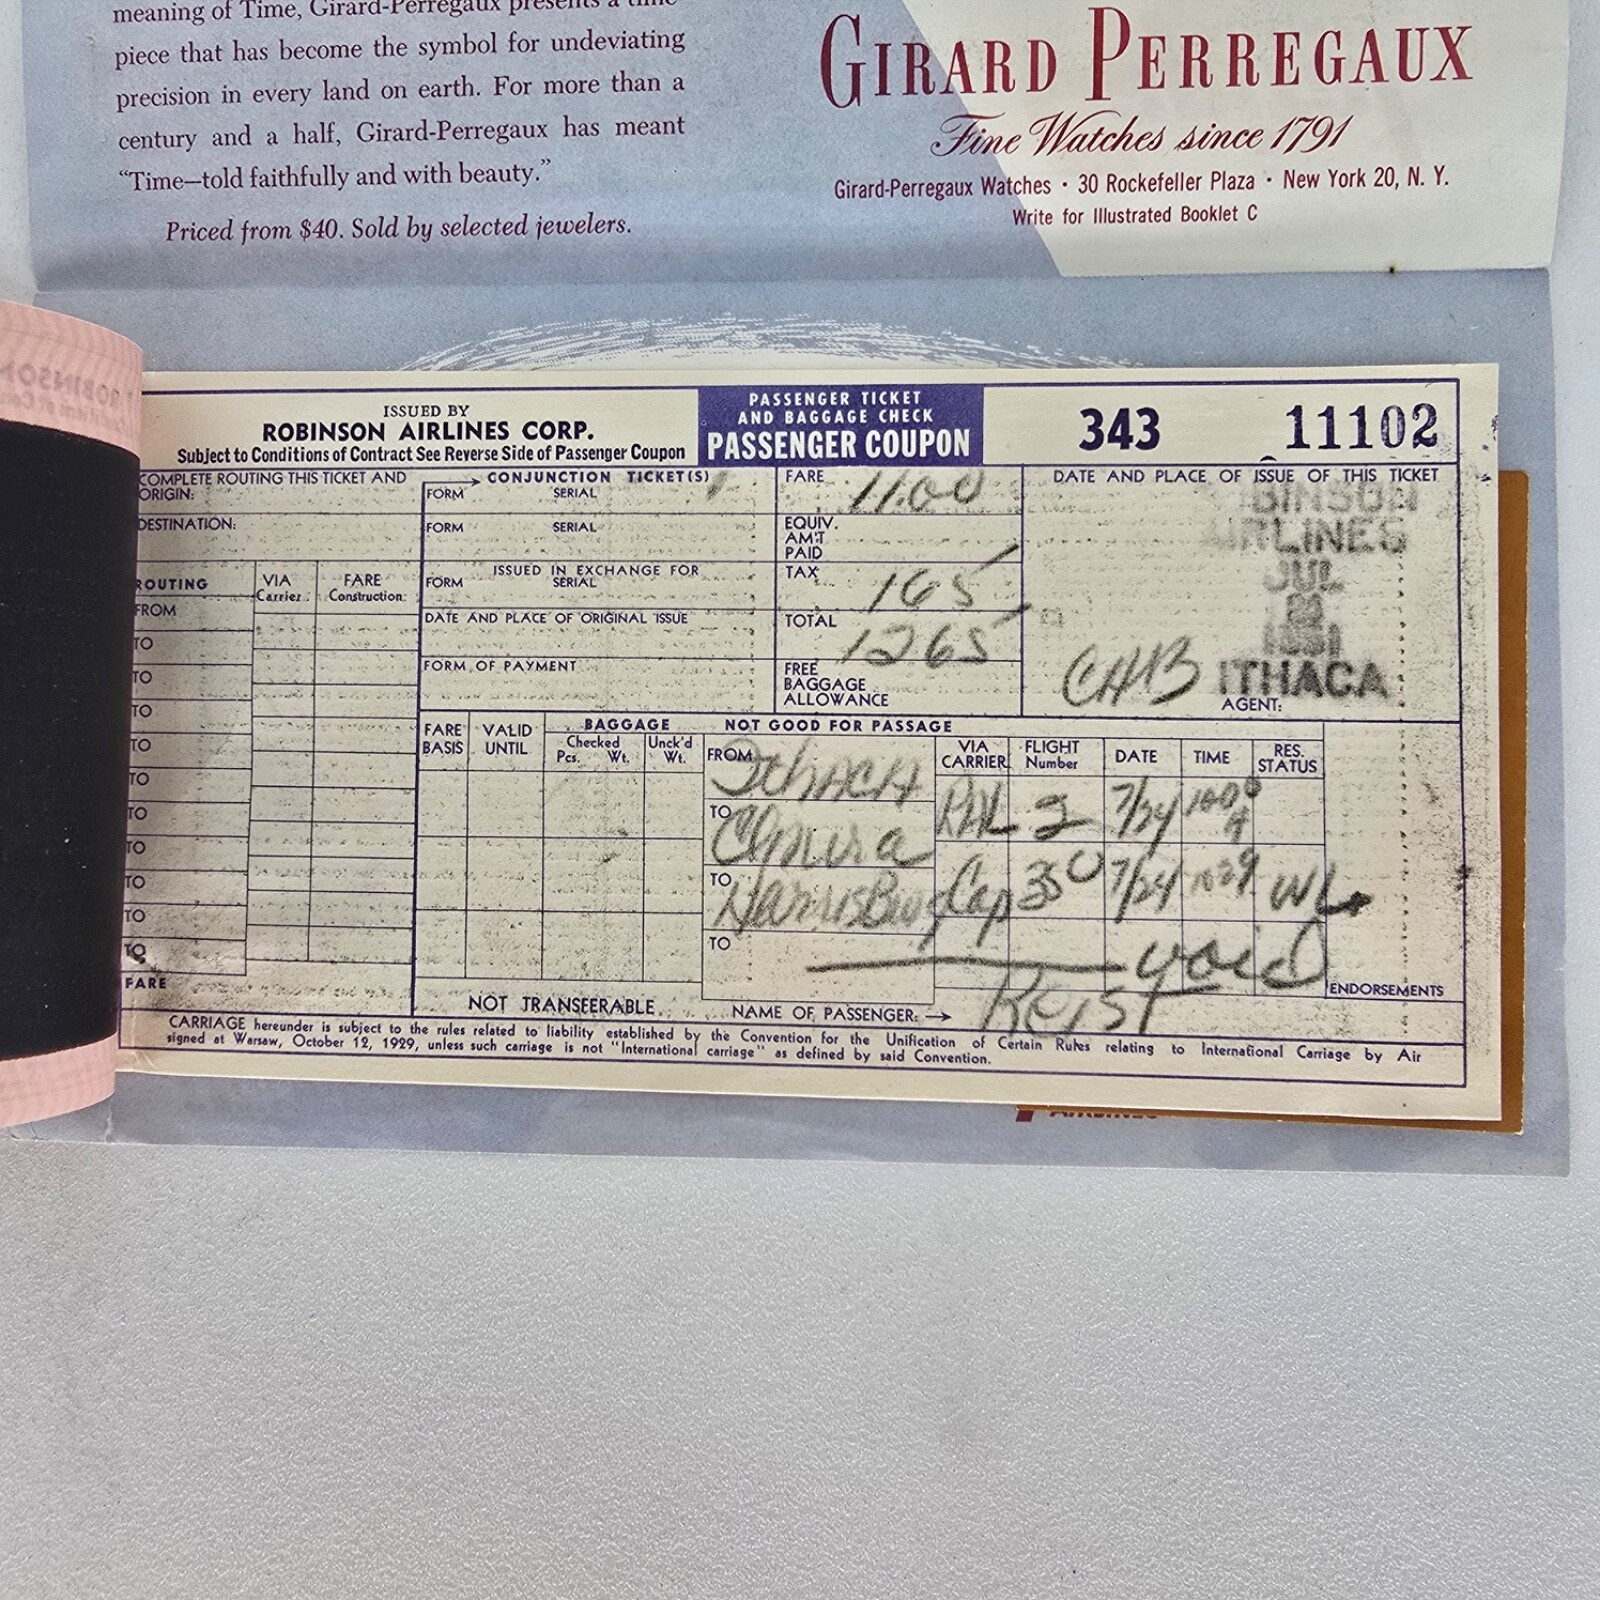 meaning of Time, Girard-Perregaux presents a time
piece that has become the symbol for undeviating
precision in every land on earth. For more than a
century and a half, Girard-Perregaux has meant
“Time—told faithfully and with beauty.”
Priced from $40. Sold by selected jewelers.
GIRARD PERREGAUX
Fine Watches since 1791
Girard-Perregaux Watches · 30 Rockefeller Plaza · New York 20, N. Y.
Write for Illustrated Booklet C
ISSUED BY
ROBINSON AIRLINES CORP.
Subject to Conditions of Contract See Reverse Side of Passenger Coupon
PASSENGER TICKET
AND BAGGAGE CHECK
PASSENGER COUPON
343 11102
COMPLETE ROUTING THIS TICKET AND
ORIGIN:
DESTINATION:
CONJUNCTION TICKET(S)
FORM SERIAL
FORM SERIAL
ISSUED IN EXCHANGE FOR
FORM SERIAL
DATE AND PLACE OF ORIGINAL ISSUE
FORM OF PAYMENT
FARE 11.00
EQUIV.
AM'T
PAID
TAX 165
TOTAL 1265
FREE
BAGGAGE
ALLOWANCE
DATE AND PLACE OF ISSUE OF THIS TICKET
AIRLINES
JUL
1951
CHB ITHACA
AGENT:
ROUTING VIA Carrier FARE Construction
FROM
TO
TO
TO
TO
TO
TO
TO
TO
TO
TO
FARE
FARE BASIS VALID UNTIL BAGGAGE NOT GOOD FOR PASSAGE
Checked Pcs. Wt. Unck'd Wt.
VIA CARRIER FLIGHT Number DATE TIME RES. STATUS
FROM Ithaca
TO Elmira RAL 2 7/24 1000 A
TO Harrisburg Cap 350 7/24 1029 WL
TO void
ENDORSEMENTS
NOT TRANSFERABLE NAME OF PASSENGER: → Keist
CARRIAGE hereunder is subject to the rules related to liability established by the Convention for the Unification of Certain Rules relating to International Carriage by Air
signed at Warsaw, October 12, 1929, unless such carriage is not "International carriage" as defined by said Convention.